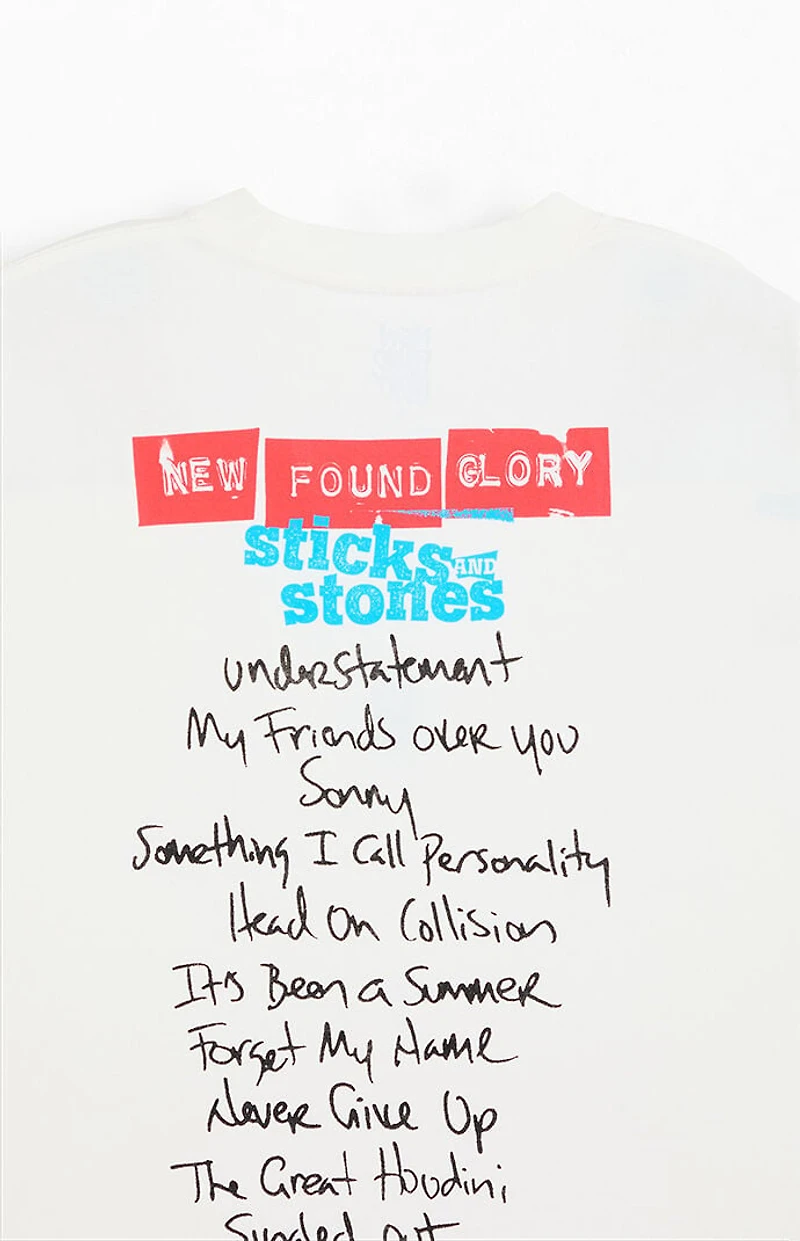 NEW FOUND GLORY
sticks AND
stones
understatement
My Friends over you
Sonny
Something I Call Personality
Head On Collision
It's Been a Summer
Forget My Name
Never Give Up
The Great Houdini